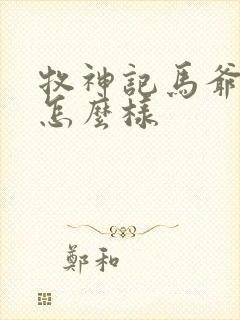 牧神記馬爺
怎麼樣
鄭和